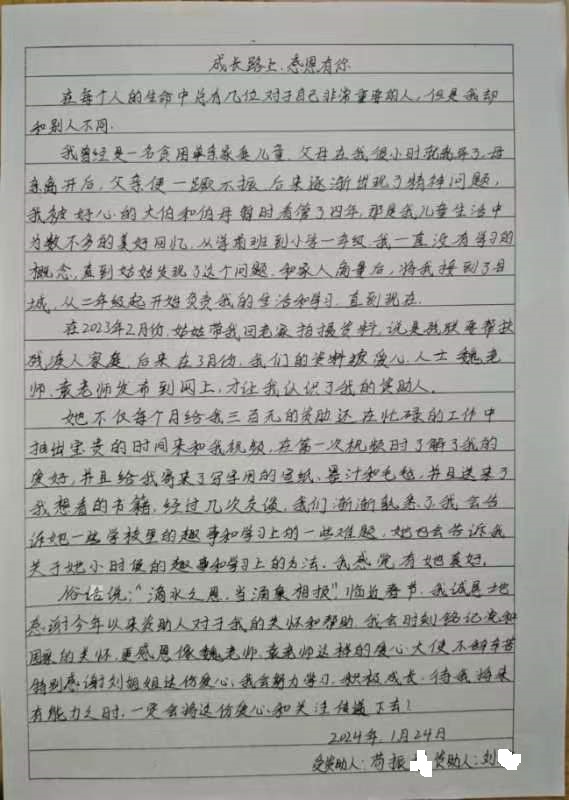 成长路上,感恩有你
在每个人的生命中总有几位对于自己非常重要的人,但是我却
和别人不同.
我曾经是一名贫困单亲家庭儿童.父母在我很小时就离异了.母
亲离开后,父亲便一蹶不振.后来逐渐出现了精神问题,
我被好心的大伯和伯母暂时看管了四年,那是我儿童生活中
为数不多的美好回忆.从学前班到小学一年级我一直没有学习的
概念,直到姑姑发现了这个问题.和家人商量后,将我接到了县
城,从二年级起开始负责我的生活和学习.直到现在.
在2023年2月份,姑姑带我回老家拍摄资料,说是我联要帮扶
残疾人家庭.后来在3月份,我们的资料被爱心人士魏老
师,袁老师发布到网上,才让我认识了我的资助人.
她不仅每个月给我三百元的资助还在忙碌的工作中
抽出宝贵的时间来和我视频,在第一次视频时了解了我的
爱好,并且给我寄来了写字用的宣纸、墨汁和毛毡,并且送来了
我想看的书籍,经过几次交谈,我们渐渐熟悉了我会告
诉她一些学校里的趣事和学习上的一些难题,她也会告诉我
关于她小时候的趣事和学习上的方法.我感觉有她真好.
俗话说:"滴水之恩,当涌泉相报"临近春节,我诚恳地
感谢今年以来资助人对于我的关怀和帮助.我会时刻铭记党和
国家的关怀,更感恩像魏老师,袁老师这样的爱心大使不辞辛苦
特别感谢刘姐姐这份爱心,我会努力学习,积极成长,待我将来
有能力之时,一定会将这份爱心和关注传递下去!
2024年1月24日
受资助人:苟振 资助人:刘